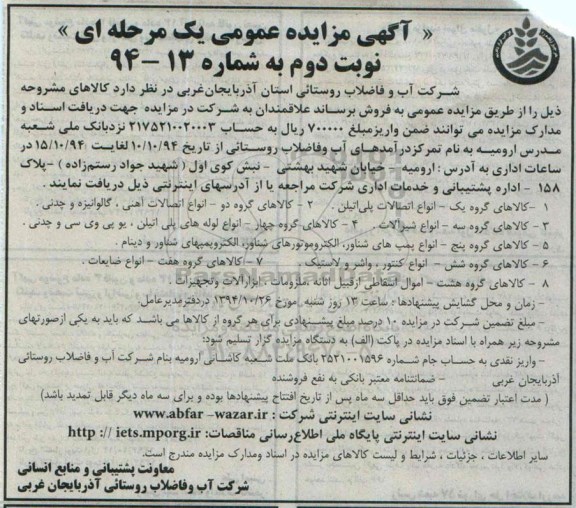 « آگهی مزایده عمومی یک مرحله ای »
نوبت دوم به شماره ۱۳ –۹۴
شرکت آب و فاضلاب روستائی استان آذربایجان‌غربی در نظر دارد کالاهای مشروحه
ذیل را از طریق مزایده عمومی به فروش برساند علاقمندان به شرکت در مزایده جهت دریافت اسناد و
مدارک مزایده می توانند ضمن واریزمبلغ ۷۰۰۰۰۰ ریال به حساب ۲۱۷۵۲۱۰۰۲۰۰۰۳ نزدبانک ملی شعبه
مدرس ارومیه به نام تمرکزدرآمدهای آب وفاضلاب روستائی از تاریخ ۱۰/۱۰/۹۴ لغایت ۱۵/۱۰/۹۴ در
ساعات اداری به آدرس : ارومیه – خیابان شهید بهشتی – نبش کوی اول ( شهید جواد رستم‌زاده ) –پلاک
۱۵۸ – اداره پشتیبانی و خدمات اداری شرکت مراجعه یا از آدرسهای اینترنتی ذیل دریافت نمایند .
۱ –کالاهای گروه یک – انواع اتصالات پلی‌اتیلن . ۲ – کالاهای گروه دو – انواع اتصالات آهنی , گالوانیزه و چدنی .
۳ – کالاهای گروه سه – انواع شیرآلات . ۴ – کالاهای گروه چهار – انواع لوله های پلی اتیلن , یو پی وی سی و چدنی .
۵ – کالاهای گروه پنج – انواع پمپ های شناور، الکتروموتورهای شناور، الکتروپمپهای شناور و دینام .
۶ – کالاهای گروه شش – انواع کنتور , واشر و لاستیک . ۷ – کالاهای گروه هفت – انواع ضایعات .
۸ – کالاهای گروه هشت – اموال اسقاطی ازقبیل اثاثه ,ملزومات , ابزارآلات وتجهیزات .
– زمان و محل گشایش پیشنهادها : ساعت ۱۳ روز شنبه مورخ ۱۳۹۴/۱۰/۲۶ دردفترمدیرعامل
– مبلغ تضمین شرکت در مزایده ۱۰ درصد مبلغ پیشنهادی برای هر گروه از کالاها می باشد که باید به یکی ازصورتهای
مشروحه زیر همراه با اسناد مزایده در پاکت (الف) به دستگاه مزایده گزار تسلیم شود:
– واریز نقدی به حساب جام شماره ۲۵۲۱۰۰۱۵۹۶ بانک ملت شعبه کاشانی ارومیه بنام شرکت آب و فاضلاب روستائی
آذربایجان غربی – ضمانتنامه معتبر بانکی به نفع فروشنده
( مدت اعتبار تضمین فوق باید حداقل سه ماه پس از تاریخ افتتاح پیشنهادها بوده و برای سه ماه دیگر قابل تمدید باشد)
نشانی سایت اینترنتی شرکت : www.abfar –wazar.ir
نشانی سایت اینترنتی پایگاه ملی اطلاع‌رسانی مناقصات: http :// iets.mporg.ir
سایر اطلاعات ، جزئیات ، شرایط و لیست کالاهای مزایده در اسناد ومدارک مزایده مندرج است.
معاونت پشتیبانی و منابع انسانی
شرکت آب وفاضلاب روستائی آذربایجان غربی